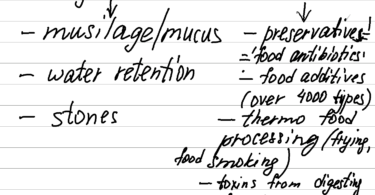 - musilage/mucus
- water retention
- stones
- preservatives=
= 'food antibiotics'
- food additives
(over 4000 types)
- thermo food
processing (frying,
food smoking)
- toxins from digesting